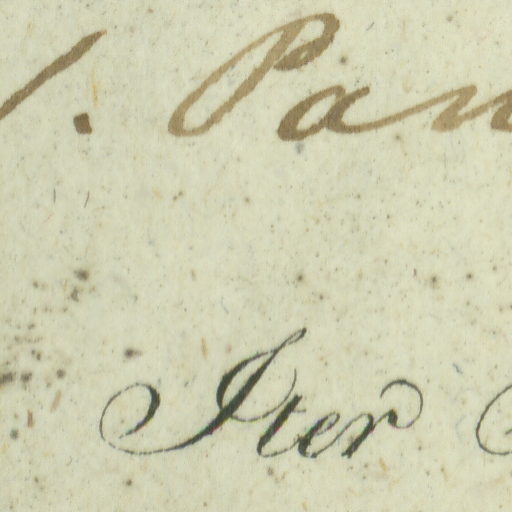 Pan
Iter